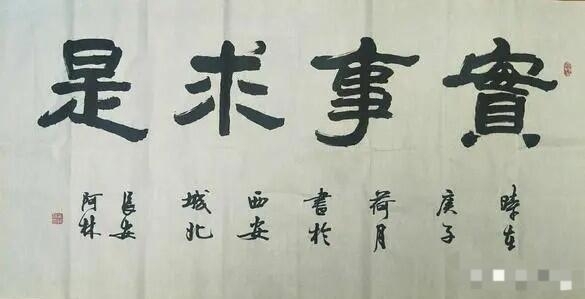 實事求是
時在
庚子
荷月
書於
西安
城北
長安
阿林